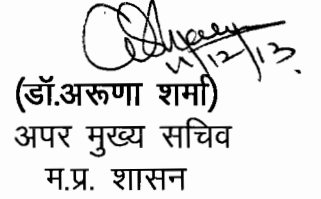 11/12/13
(डॉ.अरूणा शर्मा)
अपर मुख्य सचिव
म.प्र. शासन